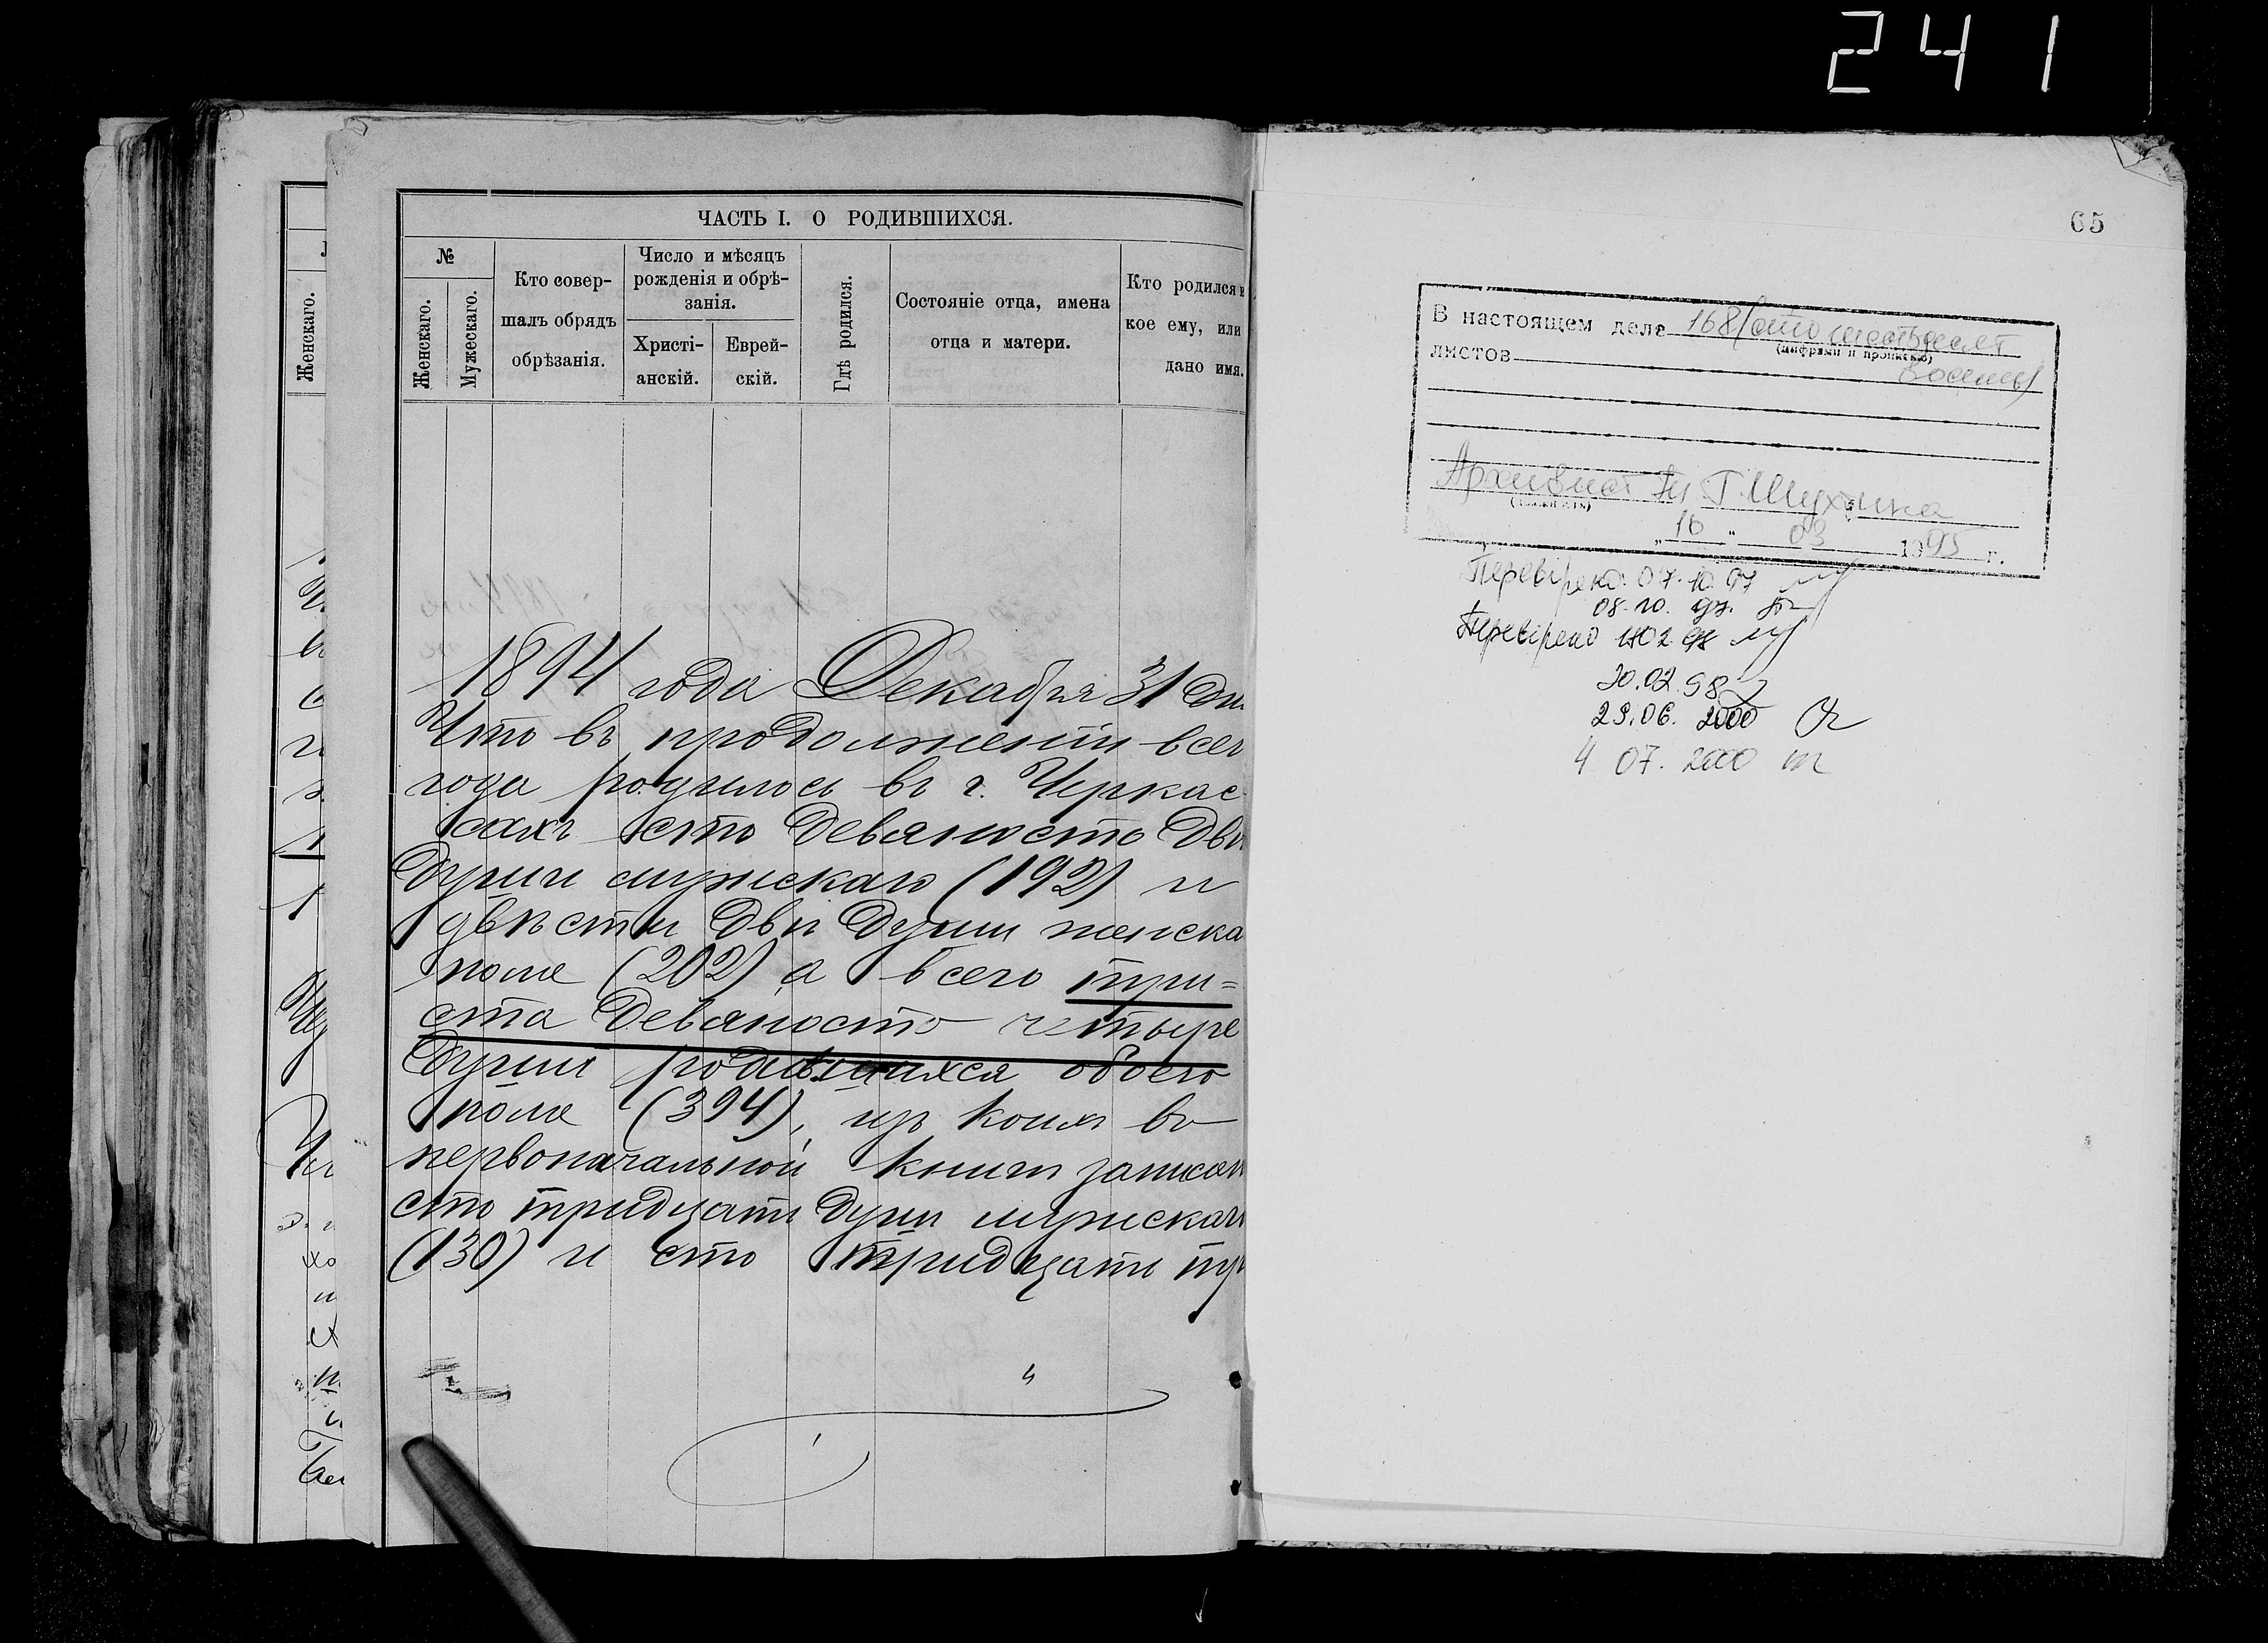 241
ЧАСТЬ I. О РОДИВШИХСЯ.
№
Женскаго.
Мужескаго.
Кто совер-
шалъ обрядъ
обрѣзанія.
Число и мѣсяцъ
рожденія и обрѣ-
занія.
Христі-
анскій.
Еврей-
скій.
Гдѣ родился.
Состояніе отца, имена
отца и матери.
Кто родился и
кое ему, или
дано имя.
Женскаго.
1894 года Декабря 31 дн
Что въ продолженіи всег
года родилось въ г. Черкас-
сахъ сто девяносто двѣ
души мужскаго (192) и
двѣсти двѣ души женска
пола (202) а всего три=
ста девяносто четыре
души родившихся обоего
пола (394), изъ коихъ въ
первоначальной книгѣ записан
сто тридцать душъ мужскаг
(130) и сто тридцать тр
65
В настоящем деле 168 (сто шестьдесят
(цифрами и прописью)
листов восемь)
Архивист Г. Шухнина
"16" 03 1995 г.
Перевірено 07.10.97
08.10.97.
Перевірено 18.02.98
20.02.98
29.06. 2000
4 07. 2000